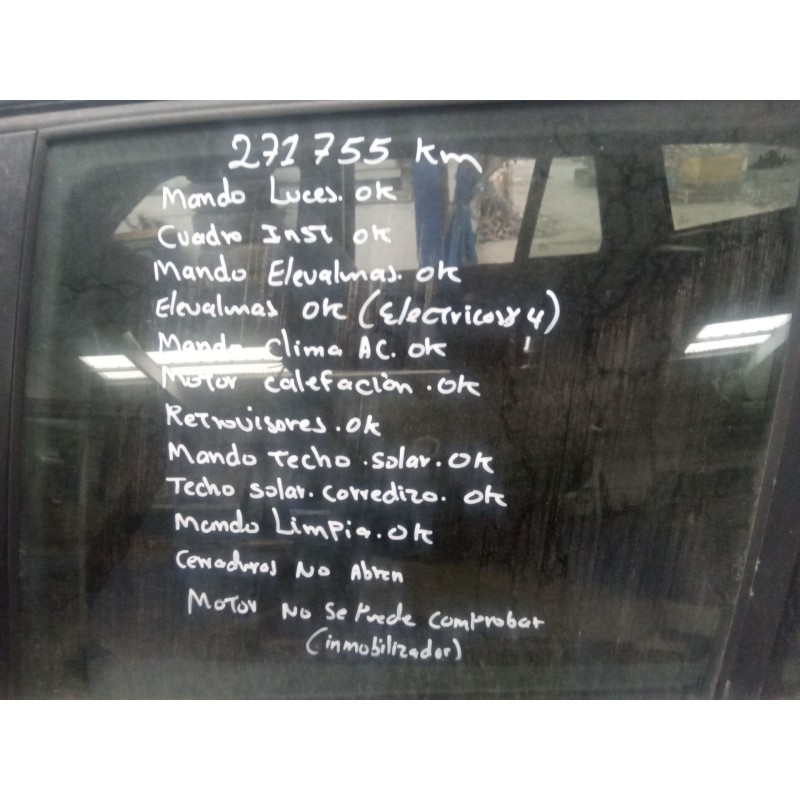 271755 km
Mando Luces. OK
Cuadro Inst. OK
Mando Elevalunas. OK
Elevalunas OK (Electricos x 4)
Mando Clima AC. OK
Motor calefación. OK
Retrovisores. OK
Mando Techo.solar. OK
Techo solar. corredizo. OK
Mando Limpia. OK
Cerraduras No Abren
Motor No Se Puede Comprobar
(inmobilizador)